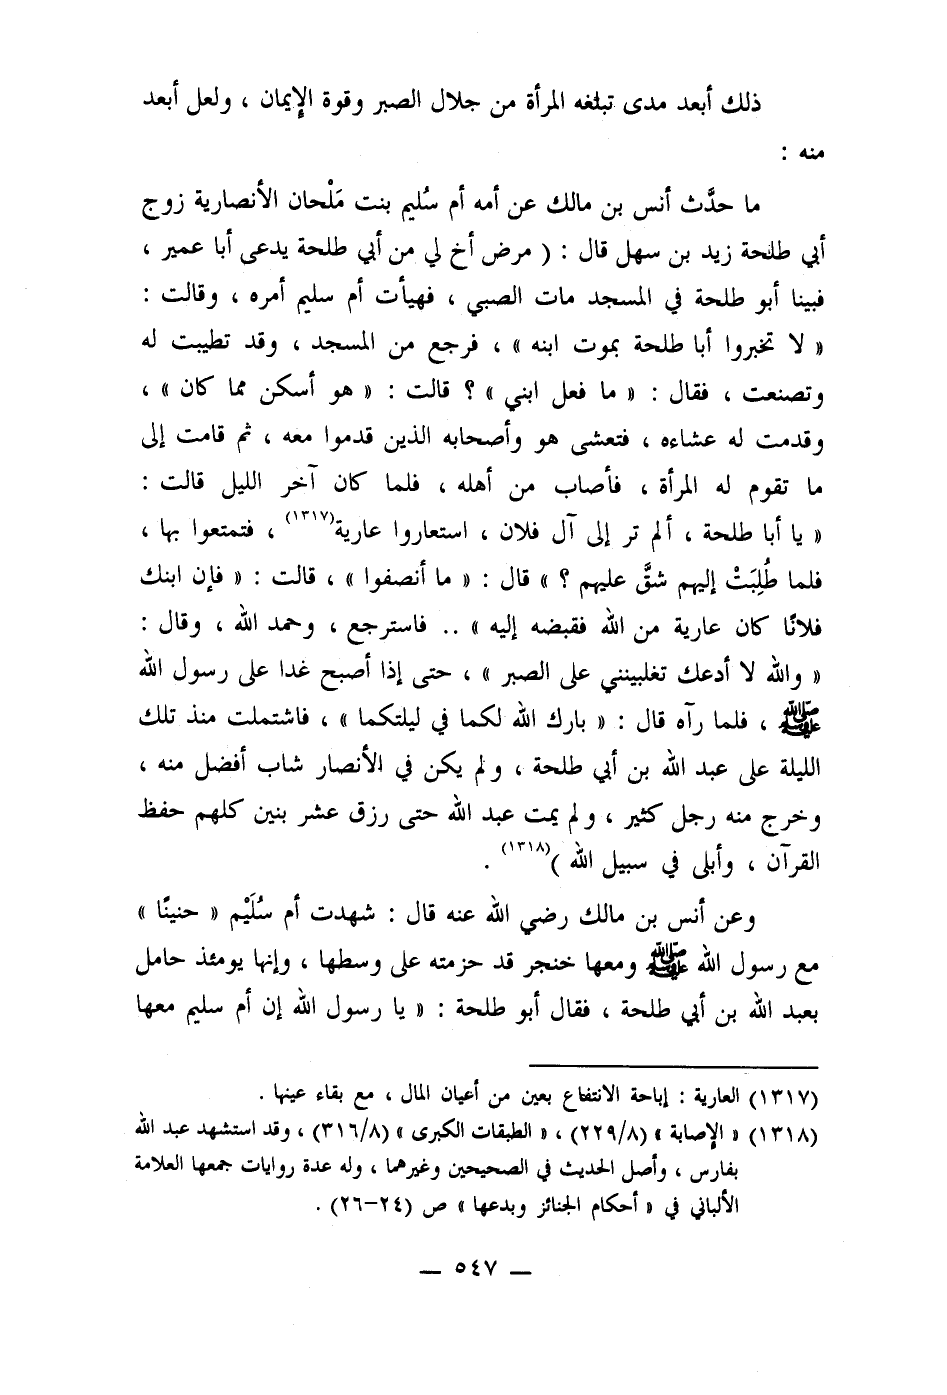 ذلك أبعد مدى تبلغه المرأة من جلال الصبر وقوة الإيمان ، ولعل أبعد
منه :
ما حدَّث أنس بن مالك عن أمه أم سُليم بنت مَلْحان الأنصارية زوج
أبي طلحة زيد بن سهل قال : ( مرض أخ لي من أبي طلحة يدعى أبا عمير ،
فبينا أبو طلحة في المسجد مات الصبي ، فهيأت أم سليم أمره ، وقالت :
« لا تخبروا أبا طلحة بموت ابنه » ، فرجع من المسجد ، وقد تطيبت له
وتصنعت ، فقال : « ما فعل ابني » ؟ قالت : « هو أسكن مما كان » ،
وقدمت له عشاءه ، فتعشى هو وأصحابه الذين قدموا معه ، ثم قامت إلى
ما تقوم له المرأة ، فأصاب من أهله ، فلما كان آخر الليل قالت :
« يا أبا طلحة ، ألم تر إلى آل فلان ، استعاروا عارية(١٣١٧) ، فتمتعوا بها ،
فلما طُلِبَتْ إليهم شقَّ عليهم ؟ » قال : « ما أنصفوا » ، قالت : « فإن ابنك
فلانًا كان عارية من الله فقبضه إليه » .. فاسترجع ، وحمد الله ، وقال :
« والله لا أدعك تغلبينني على الصبر » ، حتى إذا أصبح غدا على رسول الله
ﷺ ، فلما رآه قال : « بارك الله لكما في ليلتكما » ، فاشتملت منذ تلك
الليلة على عبد الله بن أبي طلحة ، ولم يكن في الأنصار شاب أفضل منه ،
وخرج منه رجل كثير ، ولم يمت عبد الله حتى رزق عشر بنين كلهم حفظ
القرآن ، وأبلى في سبيل الله )(١٣١٨) .
وعن أنس بن مالك رضي الله عنه قال : شهدت أم سُلَيْم « حنينًا »
مع رسول الله ﷺ ومعها خنجر قد حزمته على وسطها ، وإنها يومئذ حامل
بعبد الله بن أبي طلحة ، فقال أبو طلحة : « يا رسول الله إن أم سليم معها
(١٣١٧) العارية : إباحة الانتفاع بعين من أعيان المال ، مع بقاء عينها .
(١٣١٨) « الإصابة » (٢٢٩/٨) ، « الطبقات الكبرى » (٣١٦/٨) ، وقد استشهد عبد الله
بفارس ، وأصل الحديث في الصحيحين وغيرهما ، وله عدة روايات جمعها العلامة
الألباني في « أحكام الجنائز وبدعها » ص (٢٤-٢٦) .
— ٥٤٧ —